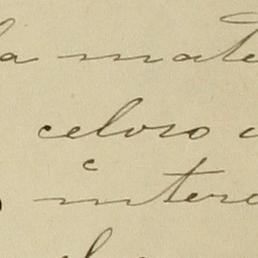 la mate
celoso
intere